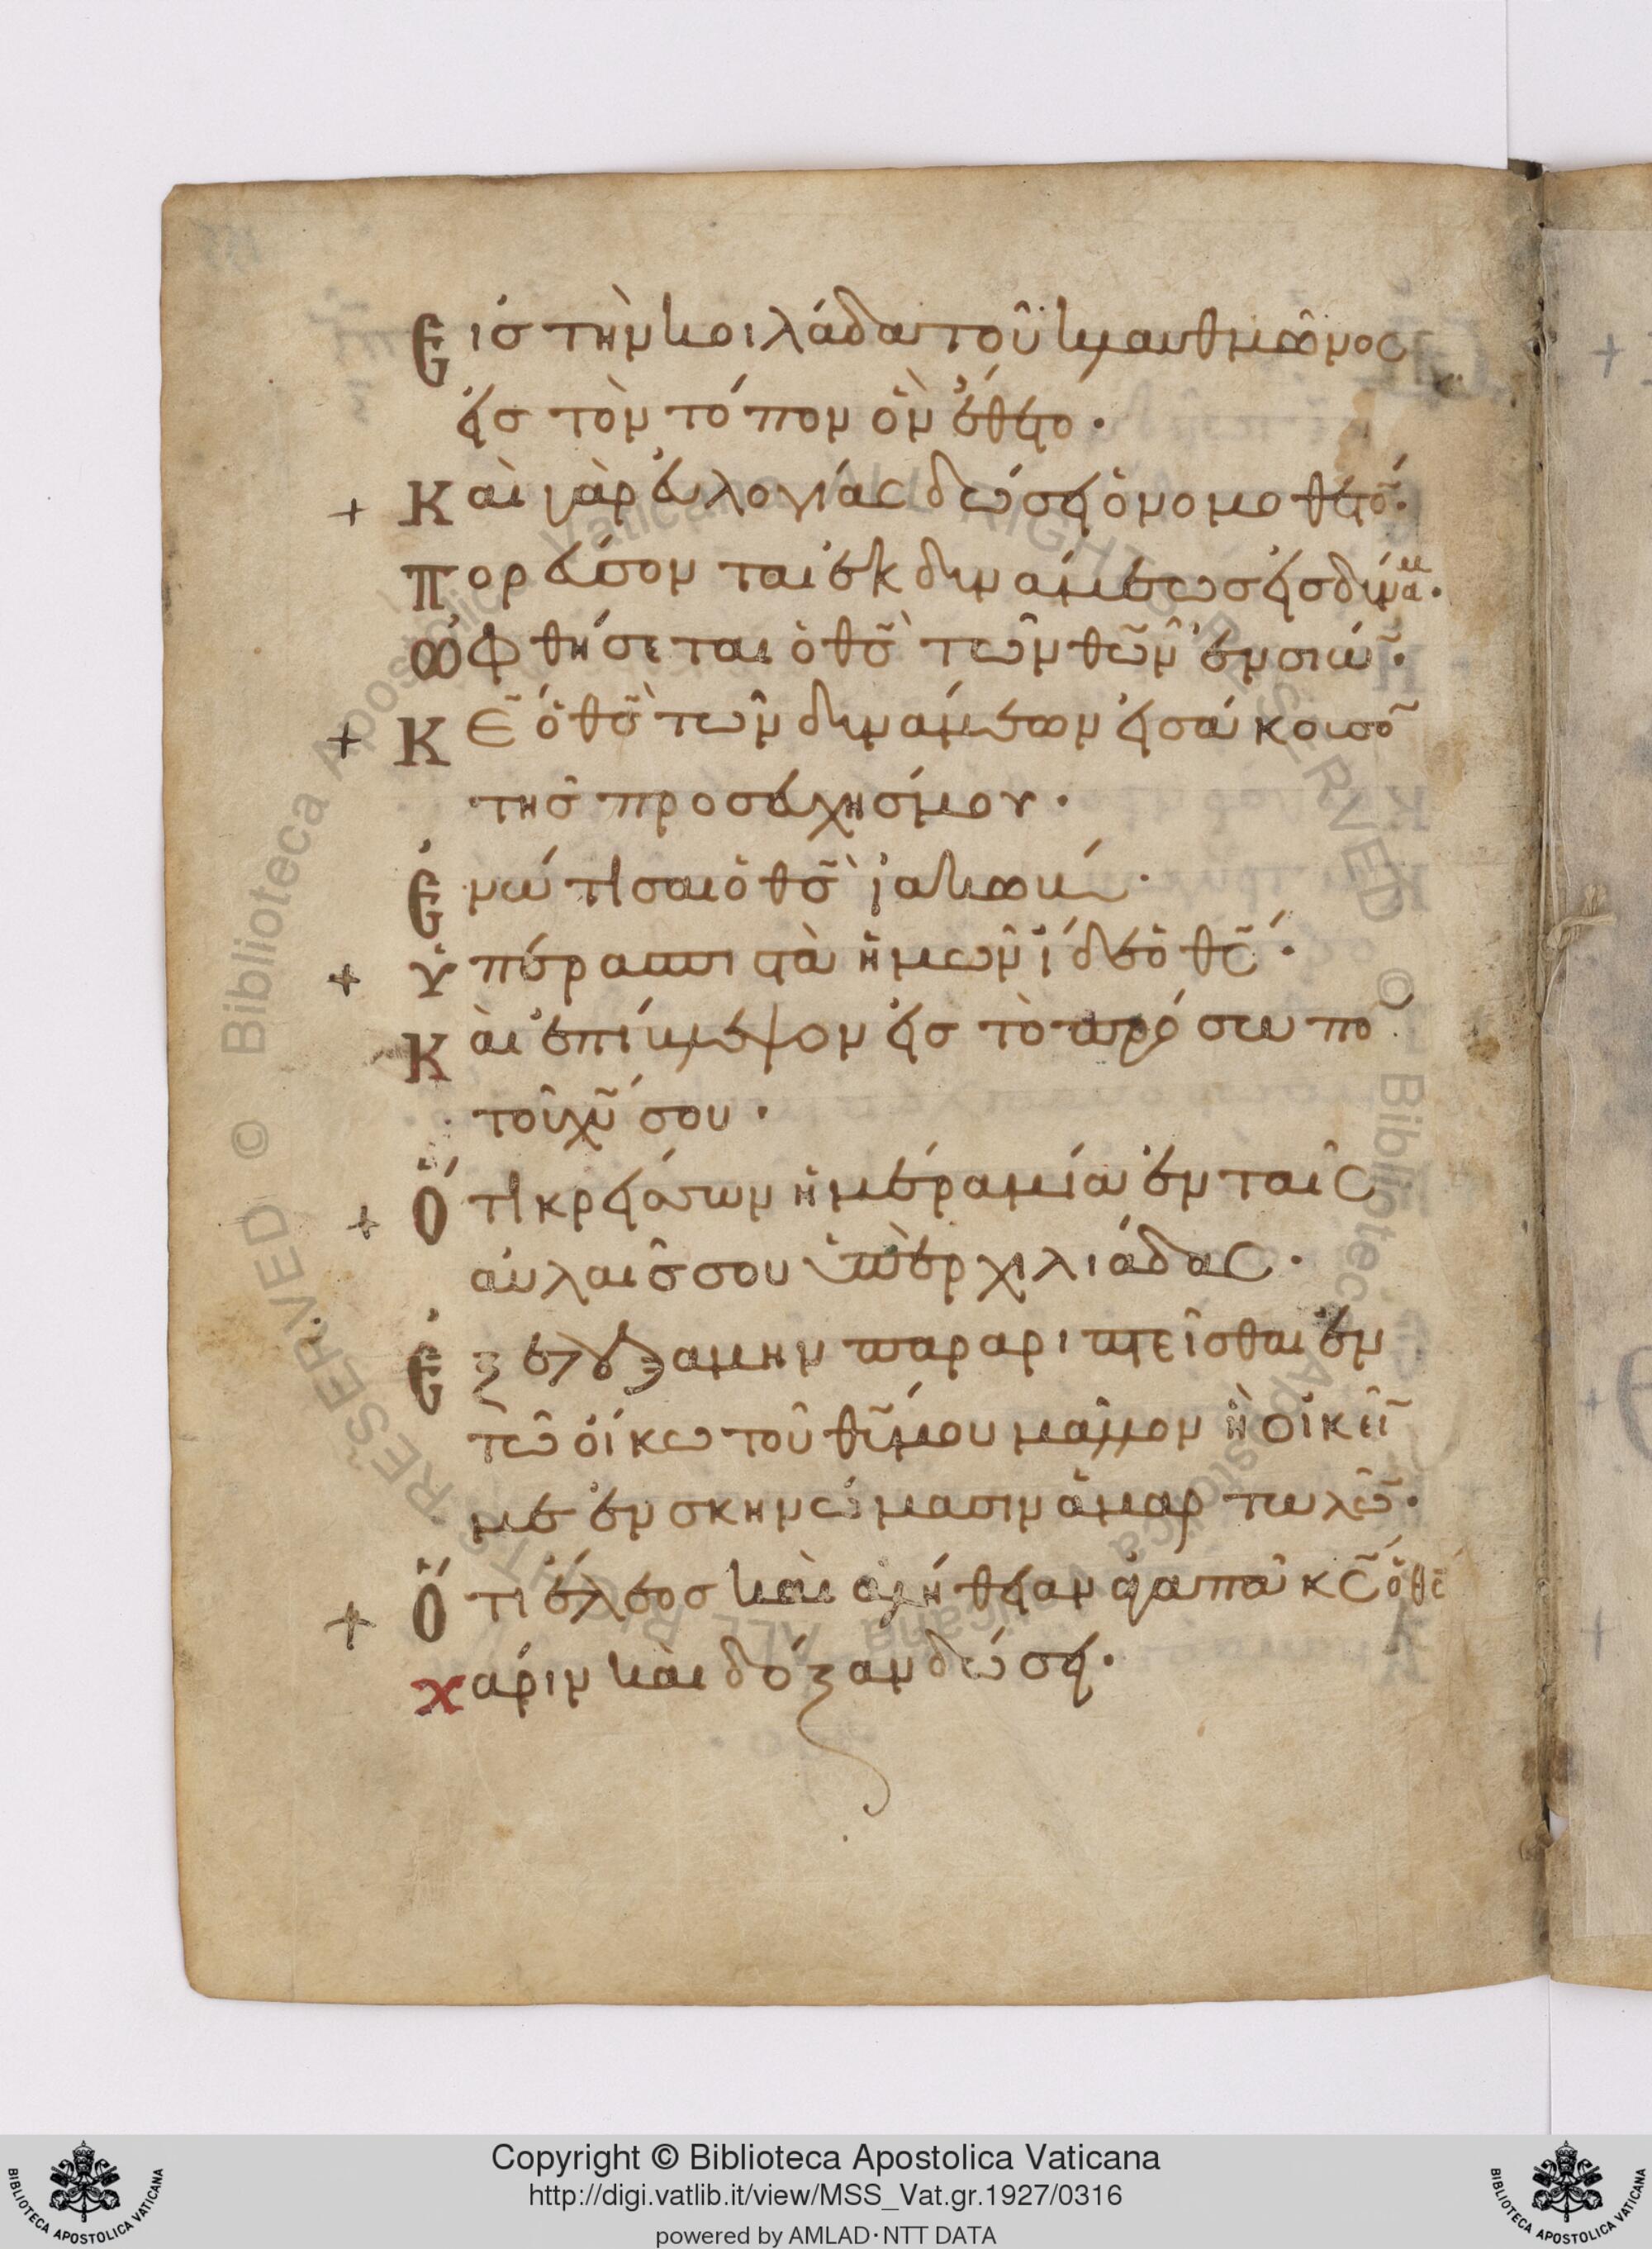 Εἰσ τὴν κοιλάδα τοῦ κλαυθμῶνος
εἰσ τὸν τόπον ὃν ἔθετο·
+ Καὶ γὰρ εὐλογίας δώσει ὁ νομοθετῶ·
Πορεύσονται ἐκ δυνάμεωσ εἰσ δύναμ·
Ὀφθήσεται ὁ θσ̃ τῶν θῶν ἐν σιών·
+ Κ̅ε̅ ὁ θσ̃ τῶν δυνάμεων εἰσάκουσο
τῆσ προσευχῆσ μου·
Ἐνώτισαι ὁ θσ̃ ἰακώβ·
+ Ὑπερασπιστὰ ἡμῶν ἴδε ὁ θς̃·
Καὶ ἐπίβλεψον εἰσ τὸ πρόσωπο
τοῦ χυ̃ σου·
+ Ὅτι κρείσσων ἡμέρα μία ἐν ταῖς
αὐλαῖσ σου ὑπὲρ χιλιάδας·
Ἐξελεξάμην παραριπτεῖσθαι ἐν
τῶ οἴκω τοῦ θυ̃ μου μᾶλλον ἢ οἰκεῖ
με ἐν σκηνώμασιν ἁμαρτωλῶ·
+ Ὅτι ἔλεοσ καὶ ἀλήθειαν ἀγαπᾶ κς̃ ὁ θς̃
Χάριν καὶ δόξαν δώσει·
Copyright © Biblioteca Apostolica Vaticana
http://digi.vatlib.it/view/MSS_Vat.gr.1927/0316
powered by AMLAD·NTT DATA
BIBLIOTECA APOSTOLICA VATICANA
BIBLIOTECA APOSTOLICA VATICANA